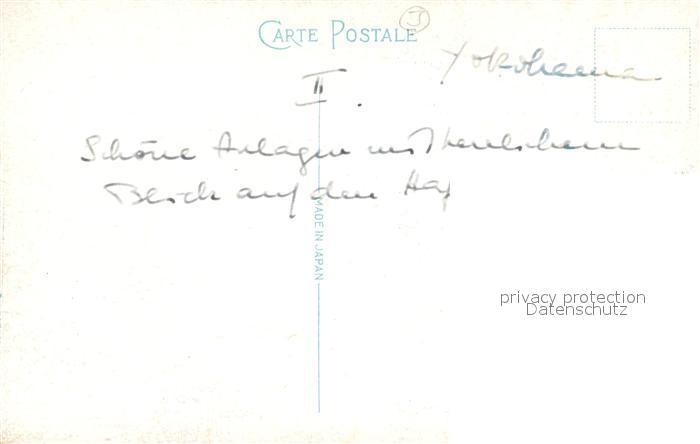 CARTE POSTALE
J
Yokohama
II.
Schöne Anlagen mit herrlichem
Blick auf den
MADE IN JAPAN
privacy protection
Datenschutz